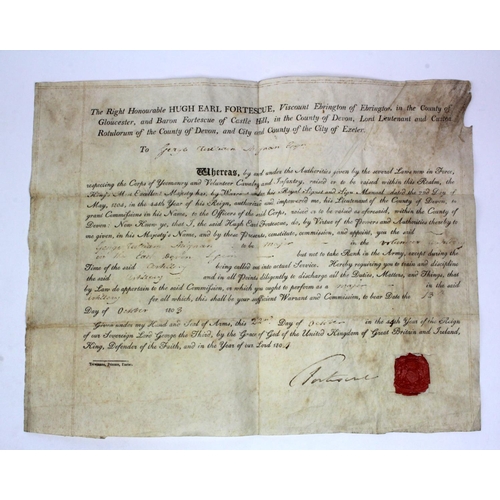 The Right Honourable HUGH EARL FORTESCUE, Viscount Ebrington of Ebrington, in the County of
Gloucester, and Baron Fortescue of Castle Hill, in the County of Devon, Lord Lieutenant and Custos
Rotulorum of the County of Devon, and City and County of the City of Exeter.
To George
Whereas, by and under the Authorities given by the several Laws now in Force,
respecting the Corps of Yeomanry and Volunteer Cavalry and Infantry, raised or to be raised within this Realm, the
King's Most Excellent Majesty has, by Warrant under his Royal Signet and Sign Manual dated the 22d Day of
May, in the 44th Year of his Reign, authorised and impowered me, his Lieutenant of the County of Devon, to
grant Commissions in his Name, to the Officers of the said Corps, raised or to be raised as aforesaid, within the County of
Devon: Now Know ye, that I, the said Hugh Earl Fortescue, do, by Virtue of the Powers and Authorities thereby to
me given, in his Majesty's Name, and by these Presents, constitute, commission, and appoint, you the said
George to be Major in the Volunteer
in the East Devon but not to take Rank in the Army, except during the
Time of the said Artillery being called into actual Service. Hereby requiring you to train and discipline
the said Artillery and in all Points diligently to discharge all the Duties, Matters, and Things, that
by Law do appertain to the said Commission, in which you ought to perform as a Major in the said
Artillery for all which, this shall be your sufficient Warrant and Commission, to bear Date the 13
Day of October 1803
Given under my Hand and Seal of Arms, this Day of October in the 44th Year of the Reign
of our Sovereign Lord George the Third, by the Grace of God of the United Kingdom of Great Britain and Ireland,
King, Defender of the Faith, and in the Year of our Lord 1804
Fortescue
Trewman, Printer, Exeter.